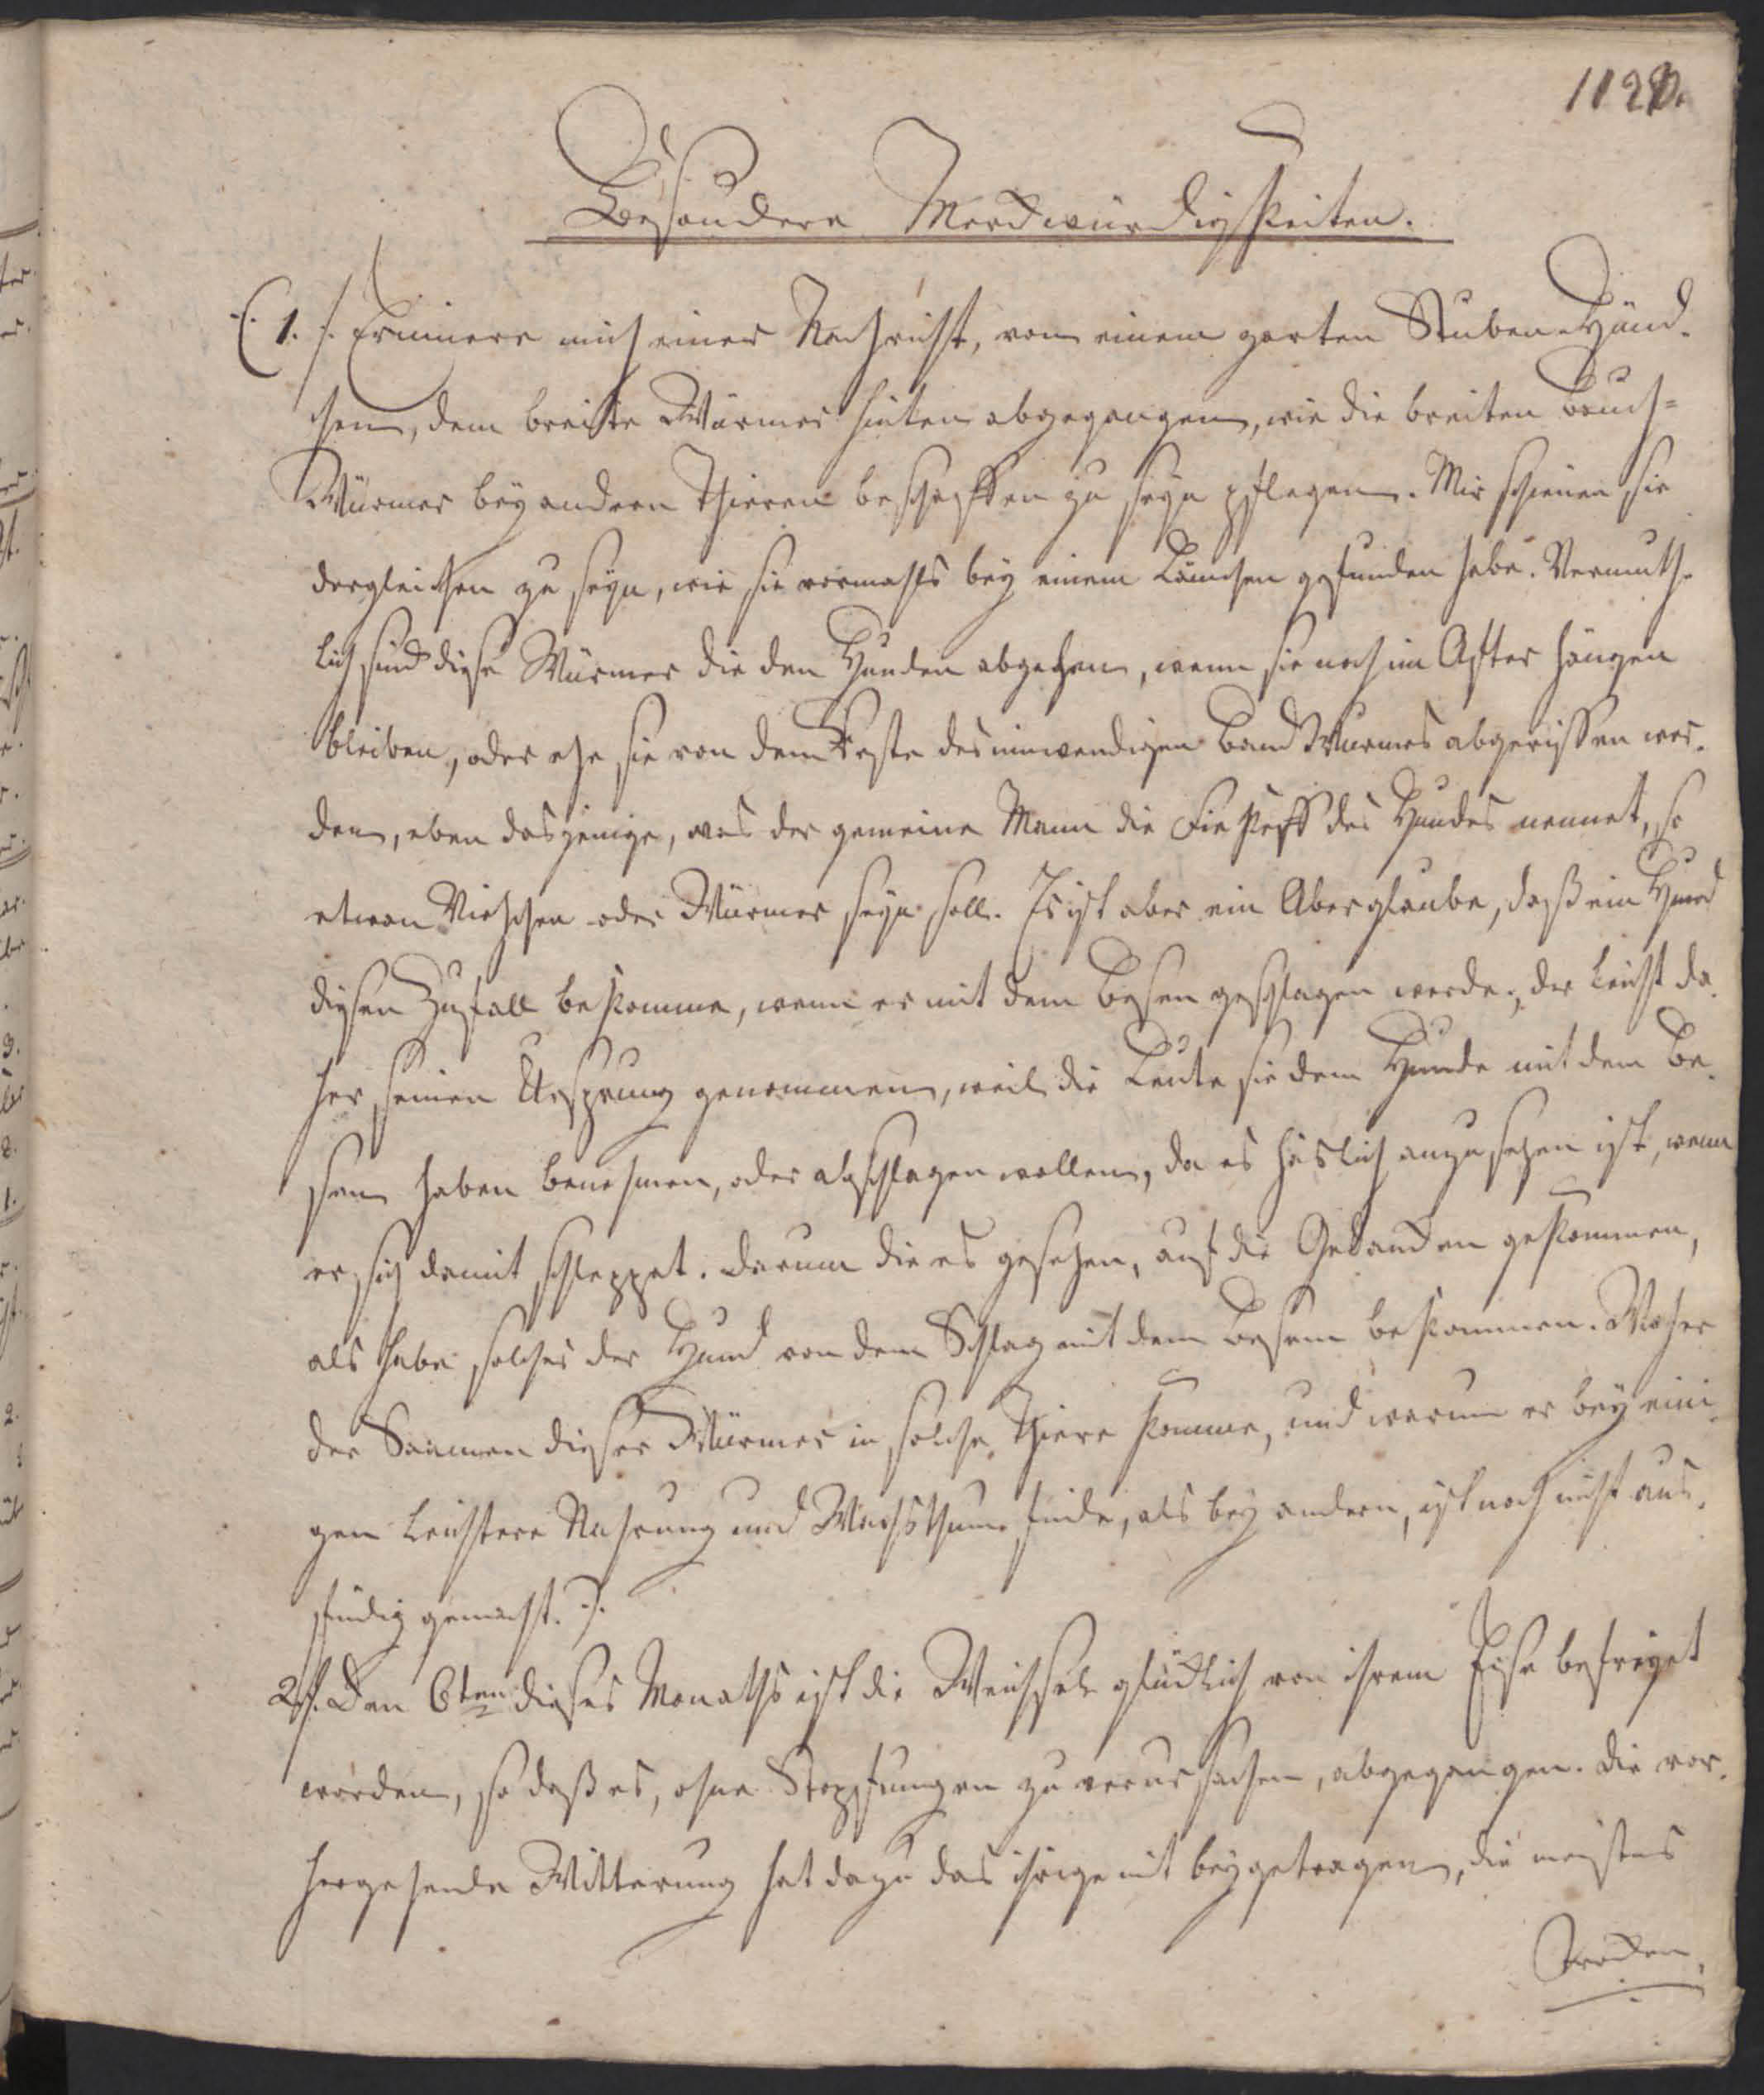 1120.
Besondere Merckwürdigkeiten.
(1. /. Erinnere mich einer Nachricht, von einem zarten Stuben-Hünd-
chen, dem breite Würmer hinten abgegangen, wie die breiten Bauch=
Würmer bey andern Thieren beschaffen zu seyn pflegen. Mir schienen sie
dergleichen zu seyn, wie sie vormahls bey einem Lämchen gefunden habe. Vermuth-
lich sind diese Würmer die den Hunden abgehen, wenn sie noch im After hängen
bleiben, oder ehe sie von dem Reste des innwendigen Band Wurmes abgerissen wer-
den, eben dasjenige, was der gemeine Mann die des Hundes nennet, so
etwan oder Würmer seyn soll. Es ist aber ein Aberglaube, daß ein Hund
diesen Zufall bekomme, wenn er mit dem Besen geschlagen werde, der leicht da-
her seinen Ursprung genommen, weil die Leute sie dem Hunde mit dem Be-
sem haben benehmen, oder abschlagen wollen, da es häslich anzusehen ist, wenn
er sich damit schleppet. Darum die es gesehen, auf die Gedancken gekommen,
als habe solches der Hund von dem Schlag mit dem Besem bekommen. Woher
der Saamen dieser Würmer in solche Thiere komme, und warum er bey eini-
gen leichtere Nahrung und Wachsthum finde, als bey andern, ist noch nicht aus-
fündig gemacht. /.
2. /. Den 6ten dieses Monaths ist die Weichsel glücklich von ihrem Eise befreyet
worden, so daß es, ohne Stopfungen zu verursachen, abgegangen. Die vor-
hergehende Witterung hat dazu das ihrige mit beygetragen, die meistens
trocken,